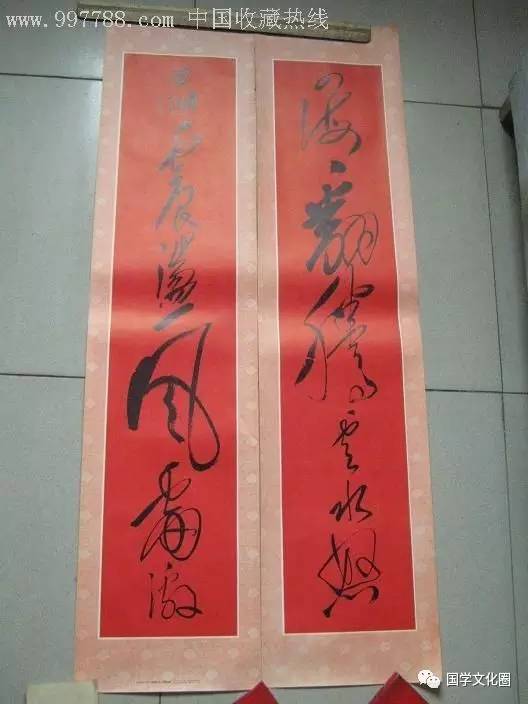 www.997788.com 中国收藏热线
四海翻騰雲水怒
五洲震盪風雷激
国学文化圈